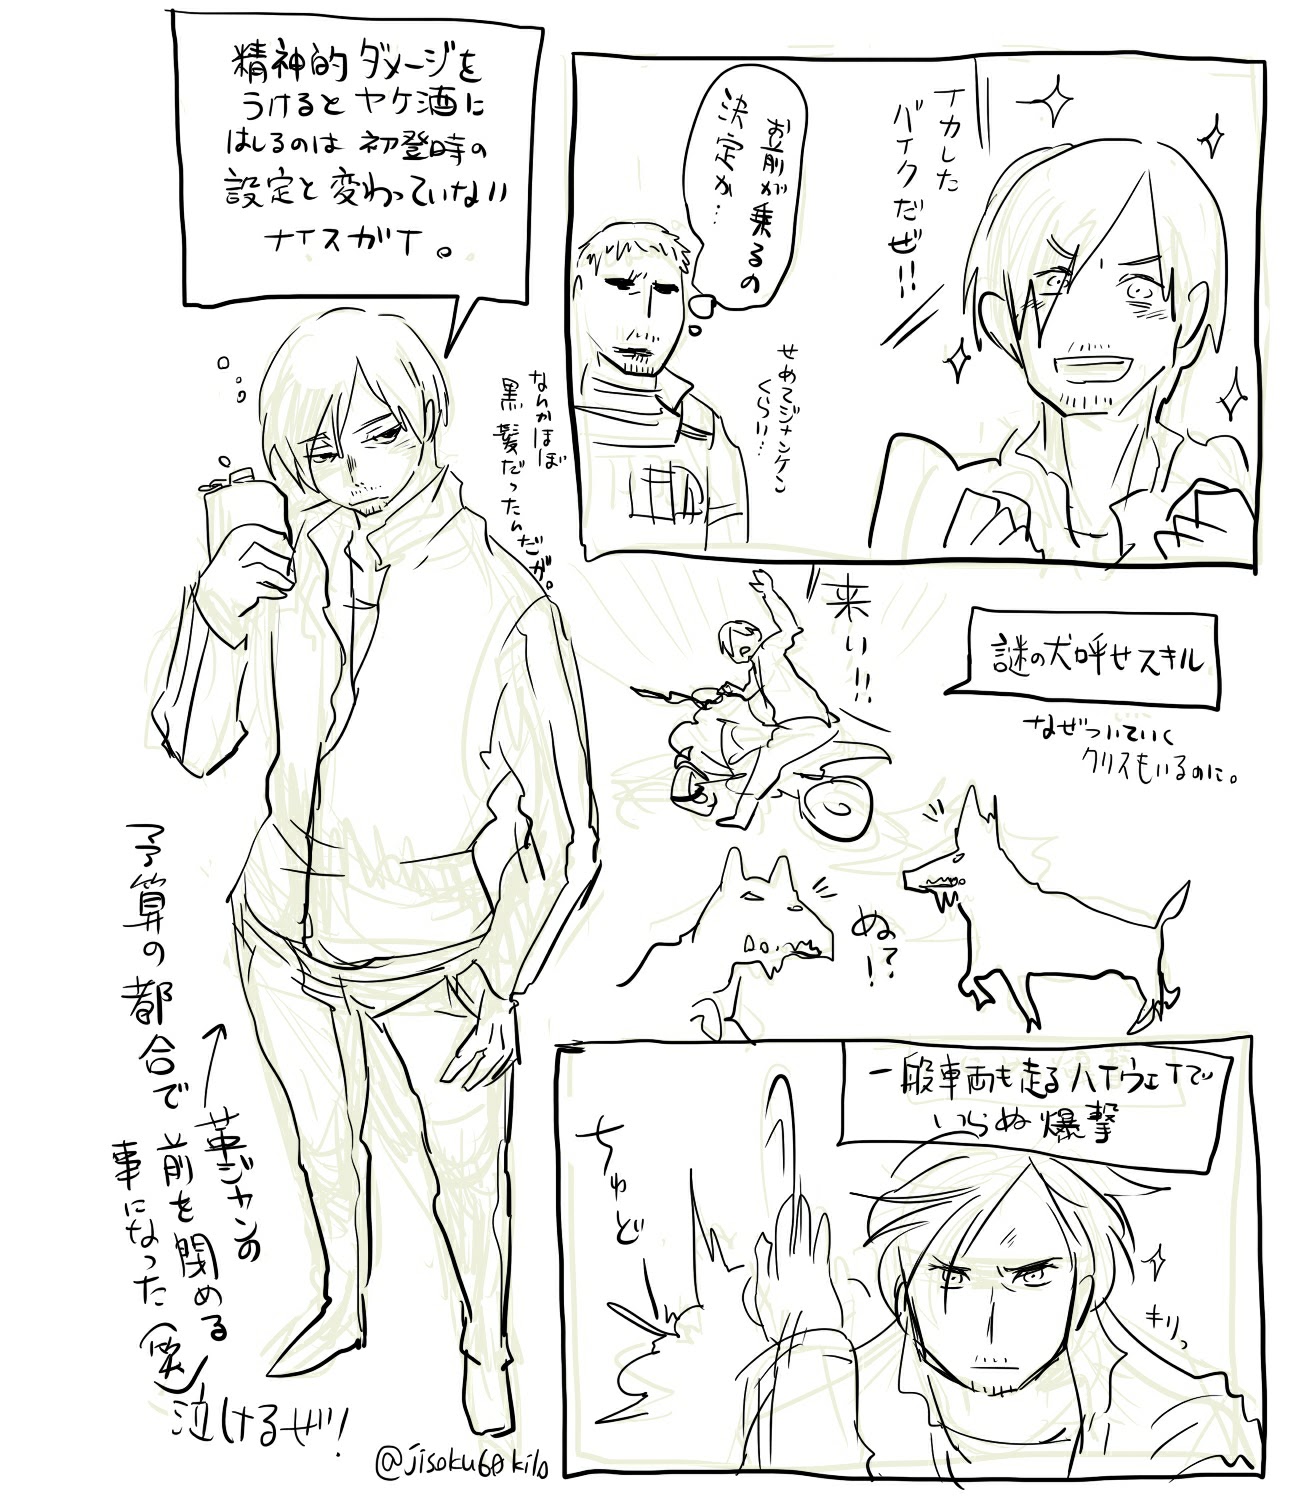 精神的ダメージを
うけるとヤケ酒に
はしるのは初登時の
設定と変わっていない
ナイスガイ。
イカした
バイクだぜ!!
お前が乗るの
決定か…
せめてジャンケン
くらい…
なんかほぼ
黒髪だったんだが。
来い!!
謎の犬呼せスキル
なぜついていく
クリスもいるのに。
ぬっ?!
一般車両も走るハイウェイで
いらぬ爆撃
ちゅど
キリっ
革ジャンの
前を閉める
事になった(笑)
予算の都合で
泣けるぜ!
@jisoku60kilo